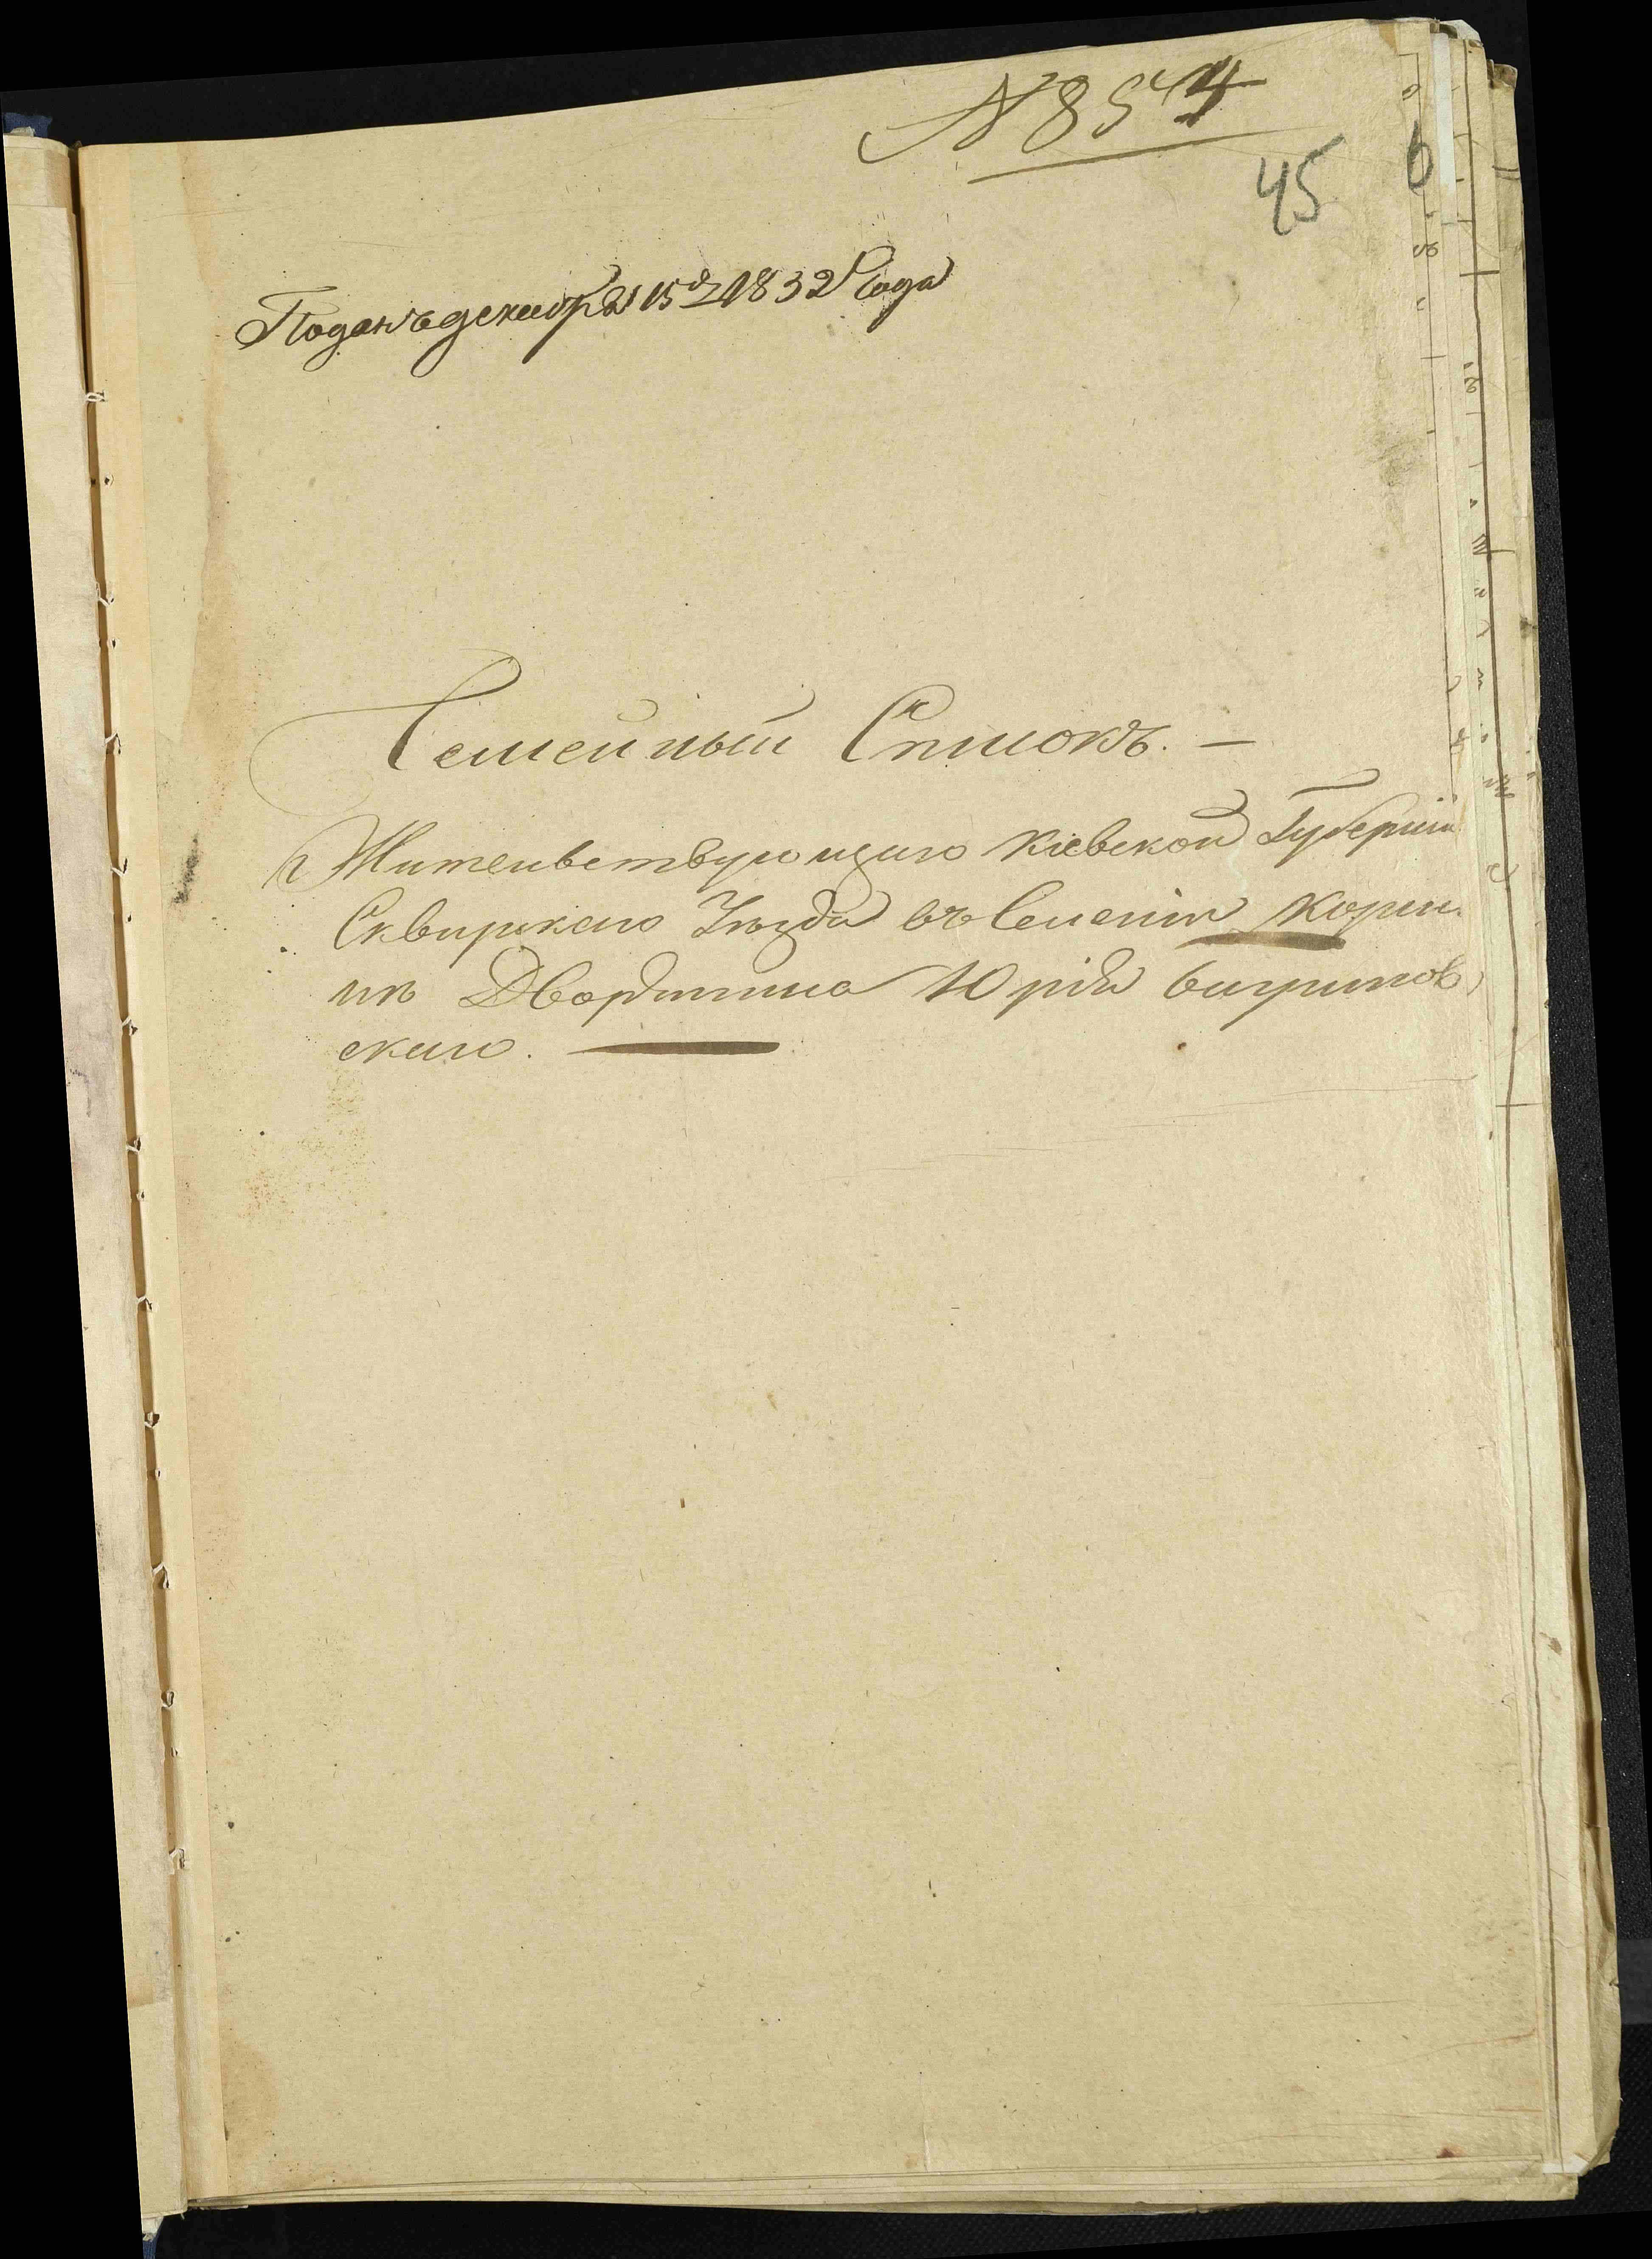 № 854
45
6
Поданъ декабря 15 д 1832 Года
Семейный Списокъ. —
Жительствующаго Кіевской Губерніи
Сквирскаго Уезда въ Селеніи Корни-
нѣ Дворянина Юрія
скаго.